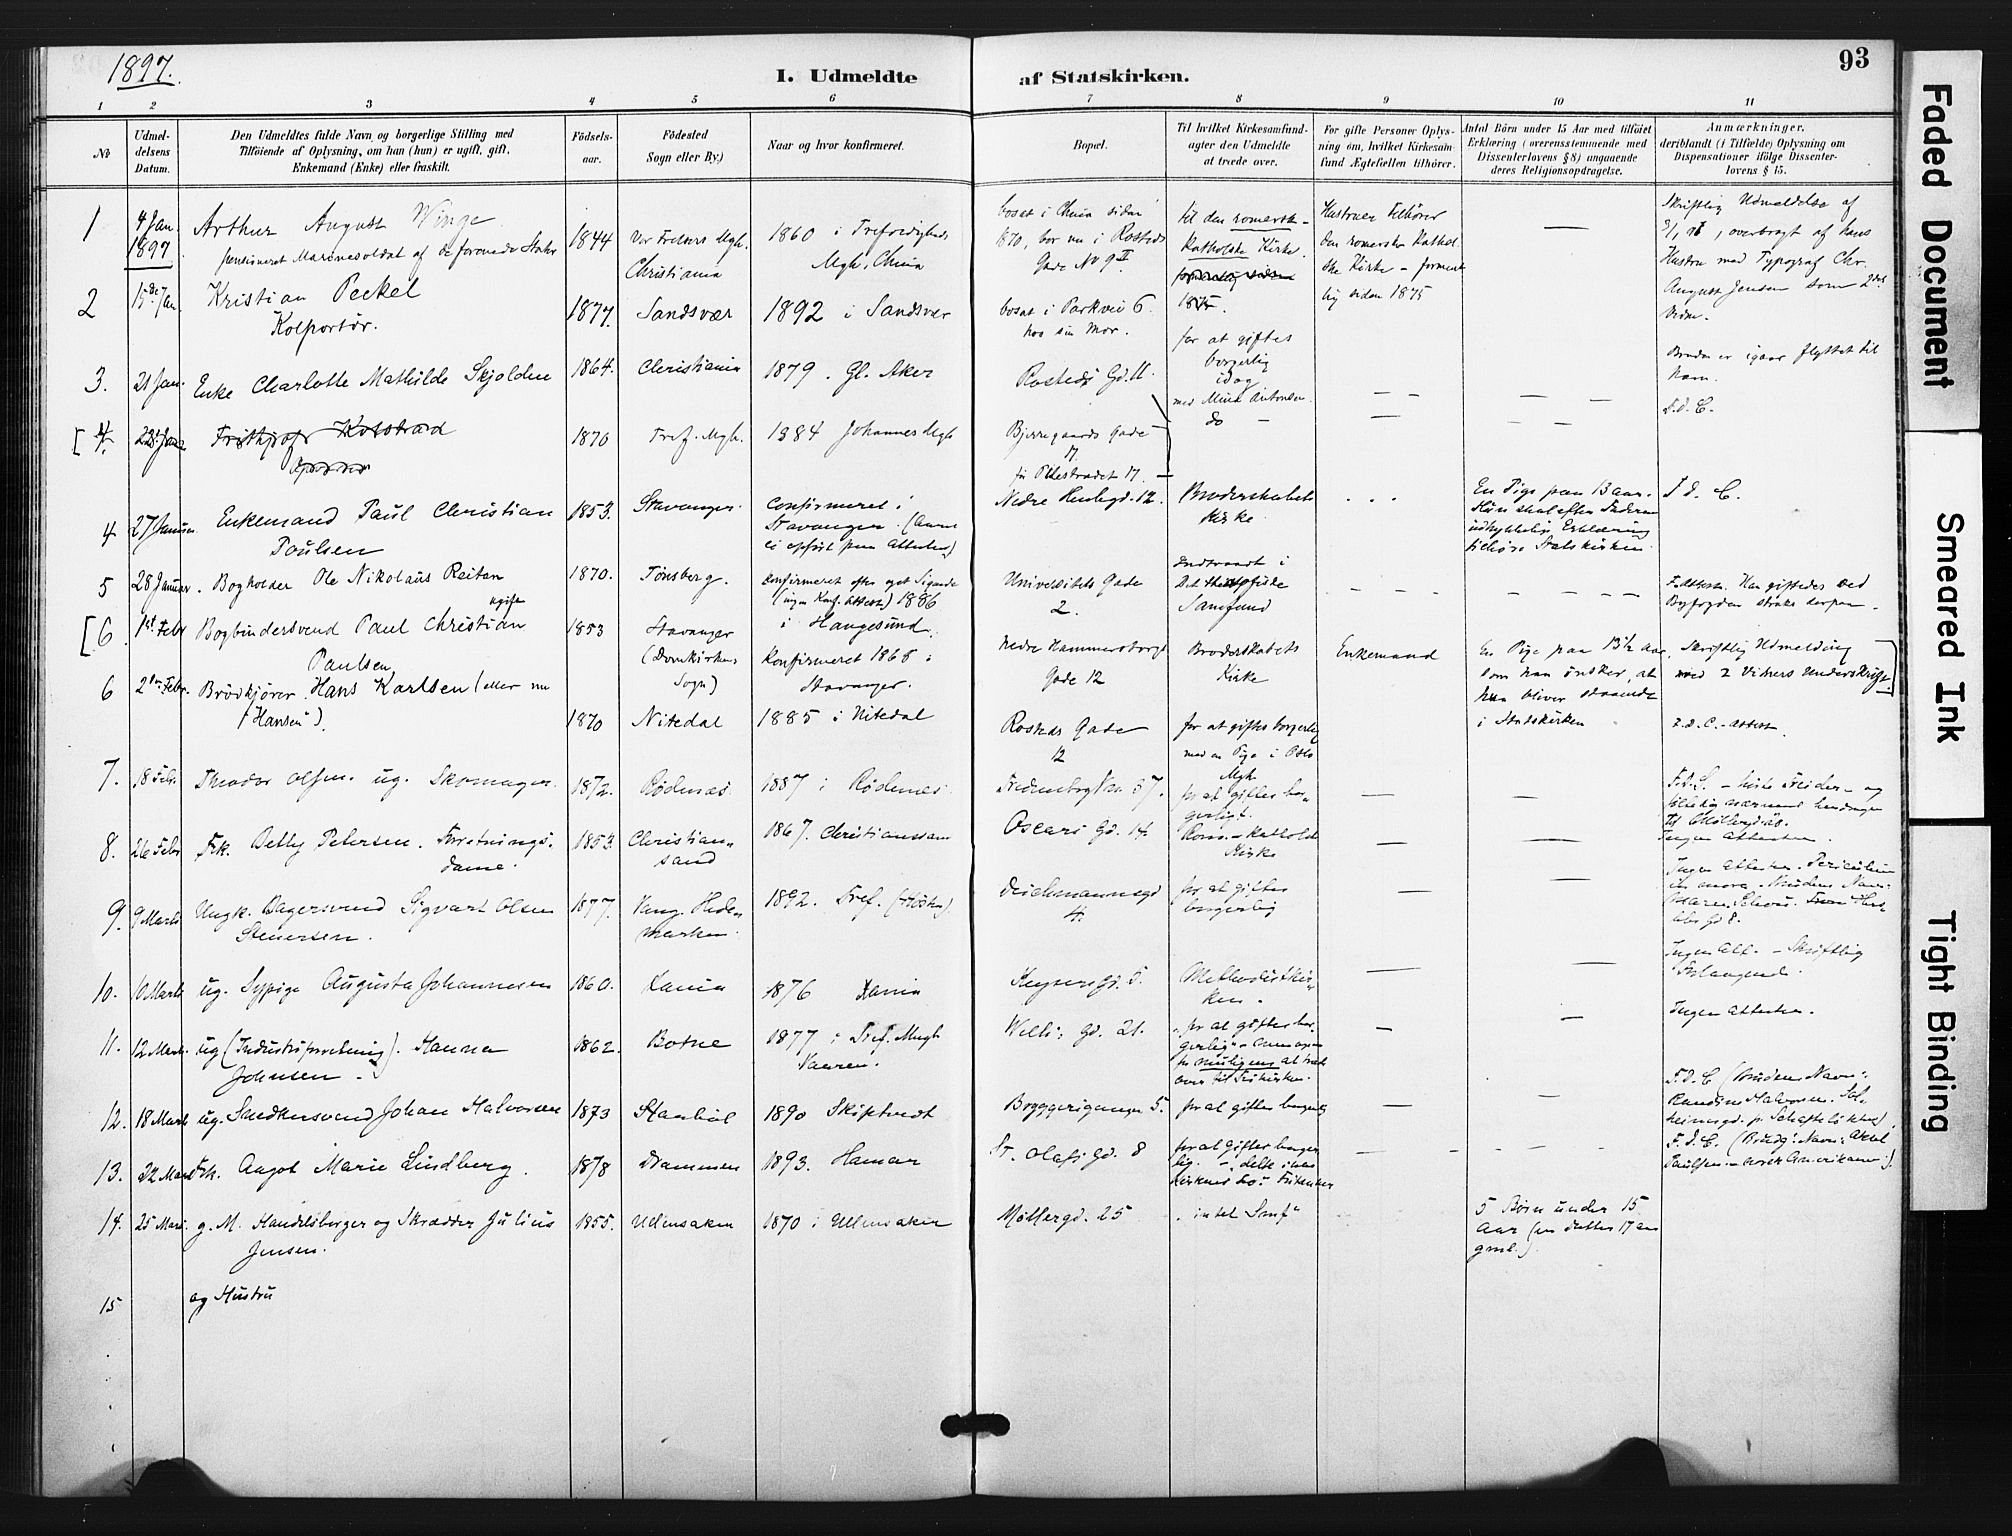 1897.
I. Udmeldte af Statskirken.
93
1 2 3 4 5 6 7 8 9 10 11
No
Udmel-
delsens
Datum.
Den Udmeldtes fulde Navn og borgerlige Stilling med
Tilföiende af Oplysning, om han (hun) er ugift, gift,
Enkemand (Enke) eller fraskilt.
Födsels-
aar.
Födested
Sogn eller By.)
Naar og hvor konfirmeret.
Bopæl.
Til hvilket Kirkesamfund-
agter den Udmeldte
at træde over.
For gifte Personer Oplys-
ning om, hvilket Kirkesam-
fund Ægtefællen tilhörer.
Antal Börn under 15 Aar med tilföiet
Erklæring (overensstemmende med
Dissenterlovens § 8) angaaende
deres Religionsopdragelse.
Anmærkninger,
deriblandt (i Tilfælde) Oplysning om
Dispensationer ifölge Dissenter-
lovens § 15.
1
4 Jan.
1897
Arthur August Winge
pensioneret Marinesoldat af de forenede Stater
1844
Vor Frelsers Mgh.
Christiania
1860 i Trefoldigheds
Mgh, Chnia
bosat i Chnia siden
1870, bor nu i Rosteds
Gade No 9 II
til den romersk-
Katholske Kirke.
1875.
Hustruen tilhörer
den romerske Kathol
ske Kirke – forment
lig siden 1875
Skriftlig Udmeldelse af
overbragt af hans
Hustru med Typograf Chr.
August Jensen som 2det
Vidne.
2
15de Jan.
Kristian Peckel
Kolportör.
1877.
Sandsvær
1892 i Sandsvær
bosat i Parkvei 6
hos sin Mor.
for at giftes
borgerlig
idag
med Mina Antonsen
Bruden er igaar flyttet til
ham.
3.
21 Jan.
Enke Charlotte Mathilde Skjolden
1864.
Christiania
1879. Gl. Aker
Rosteds Gd. 11.
do –
F.d. C.
[ 4.
22 Jan
Frithjof
1870
Tref. Mgh.
1884 Johannes Mgh
Bjerregaards Gade
17
för Pilestrædet 17.
4
27 Januar
Enkemand Paul Christian
Poulsen
1853.
Stavanger.
Confirmeret i
Stavanger. (Aaret
ei opfört paa Attesten)
Nedre 12.
Broderskabets
Kirke
En Pige paa 13 aar.
Hun skal efter Faderens
udtrykkelige Erklæring
tilhöre Statskirken.
F. d. C.
5
28 Januar.
Bogholder Ole Nikolaus Reitan
ugift
1870.
Tønsberg.
Konfirmeret efter eget Sigende
(ingen Konf. attest) 1886
i Haugesund.
Universitets Gade
2.
indtraadt i
Det
Samfund
F. Attest. Han giftedes ved
Byfogden straks derpaa.
[6
1st Febr
Bogbindersvend Paul Christian
Paulsen
1853
Stavanger
(Domkirkens
Sogn)
Konfirmeret 1868 i
Stavanger.
Nedre Hammersborg
Gade 12
Broderskabets
Kirke
Enkemand
En Pige paa 13½ aar
som han önsker, at
hun bliver staaende
i Statskirken
Skriftlig Udmelding
med 2 Vitners Underskrift.
6
2den Febr.
Brödkjører Hans Karlsen (eller nu
"Hansen").
1870
Nitedal
1885 i Nitedal
Rosteds Gade
12
for at giftes borgerlig
med en Pige i Oslo
Mgh
F.d.C. – attest.
7.
18 Febr.
Theodor Olsen. ug. Skomager.
1872.
Rødenæs
1887 i Rødenæs
Fredensborg Vn 37.
for at giftes bor-
gerligt.
8.
26 Febr
Frk. Petersen. Forretnings-
dame.
1853.
Christian-
sand
1867. Christianssand
Oscars Gd. 14
Rom. – katholske
Kirke
Ingen attester.
9.
9 Marts
Ungk. Bagersvend Sigvart Olsen
Steuersen.
1877.
Vang. Hede-
marken.
1892. Tref.
Deichmannsgd
4.
for at giftes
borgerlig
10.
10 Marts
ug. Sypige Augusta Johannesen
1860.
Xania
1876 Xania
Keysers gd. 5.
Methodistkir-
ken.
Ingen Att. – Skriftlig
Forlangende.
11.
12 Marts
ug (Industriforretning). Hanna
Johnsen –
1862.
Botne
1877 i Tref. Mngh
Vaaren.
Welh. Gd. 21.
"for at giftes bor-
gerlig"
for muligens at træde
over til Frikirken.
Ingen attester.
12.
18 Marts
ug. Snedkersvend Johan Halvorsen
1873
1890 Skiptvedt
Bryggerigangen 5.
for at giftes borgerlig
F.d.C (Brudens Navn:
13.
22 Mars
Frk. Aagot Marie Lindberg.
1878
Drammen
1893. Hamar
St. Olafs Gd. 8
for at giftes borger
lig.
F.d.C.
14.
25 Mars
g. M. Handelsborger og Skrædder Julius
Jensen.
1855.
Ullensaker
1870 i Ullensaker
Möllergd. 25
"intet Smf"
5 Børn under 15
Aar (en Datter 17 aar
gml.).
15
og Hustru
Faded Document
Smeared Ink
Tight Binding